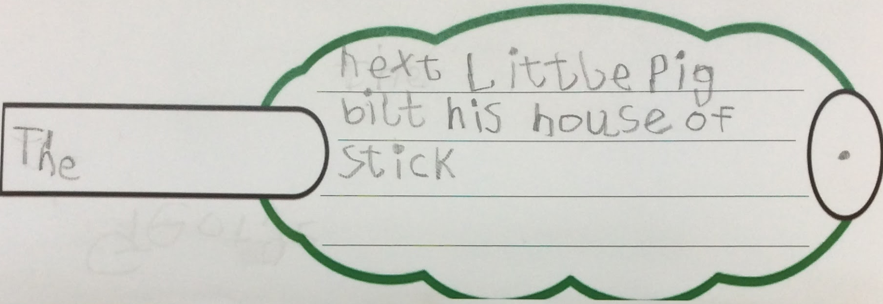 The
next Littbe Pig
bilt his house of
Stick
.